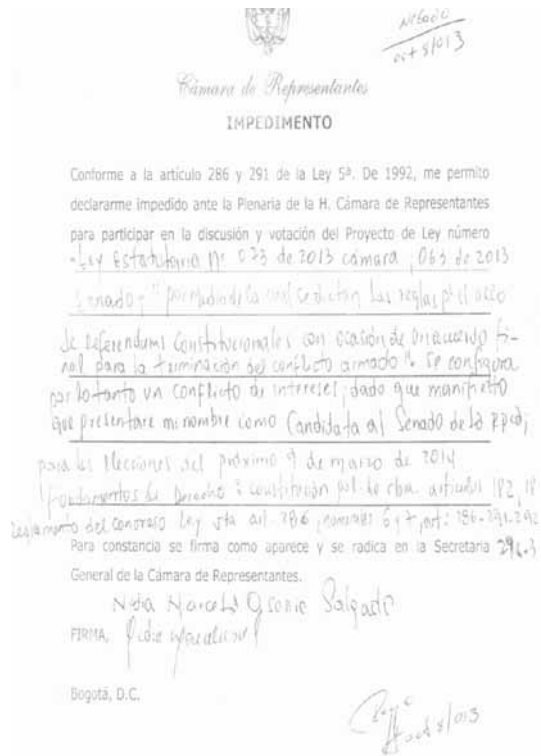 Negado
oct 8/013
Cámara de Representantes
IMPEDIMENTO
Conforme a la artículo 286 y 291 de la Ley 5ª. De 1992, me permito
declararme impedido ante la Plenaria de la H. Cámara de Representantes
para participar en la discusión y votación del Proyecto de Ley número
Ley Estatutaria Nº 073 de 2013 cámara, 063 de 2013
Senado " por medio de la cual se dictan las reglas
de referendums Constitucionales con ocasión de un acuerdo fi-
nal para la terminación del conflicto armado". Se configura
por lo tanto un conflicto de intereses, dado que manifiesto
que presentare mi nombre como Candidata al Senado de la
para las elecciones del próximo 9 de marzo de 2014
Fundamentos de Derecho: constitución pol. de artículos 182, 18
Reglamento del congreso Ley 5ta art. 286, numerales 6 y 7, art: 286-291-292
Para constancia se firma como aparece y se radica en la Secretaria
General de la Cámara de Representantes.
Nidia Marcela Osorio Salgado
FIRMA,
Bogotá, D.C.
oct 8/013